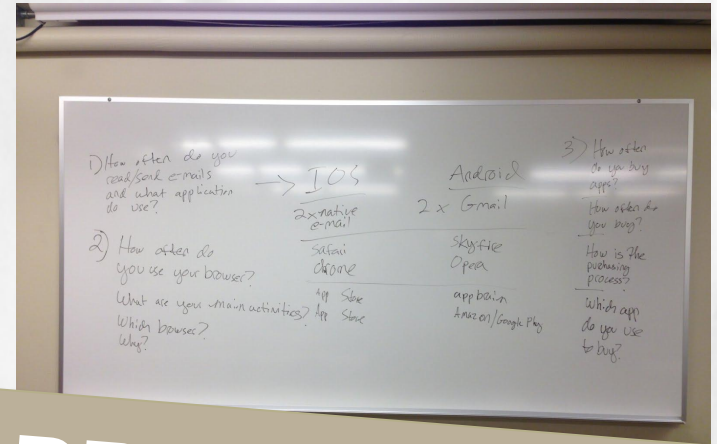 1) How often do you
read/send e-mails
and what application
do use?
2) How often do
you use your browser?
What are your main activities?
Which browser?
Why?
→ IOS
2x native
e-mail
Safari
chrome
App Store
App Store
Android
2 x Gmail
Skyfire
Opera
appbrain
Amazon/Google Play
3) How often
do you buy
apps?
How often do
you buy?
How is the
purchasing
process?
Which app
do you use
to buy?